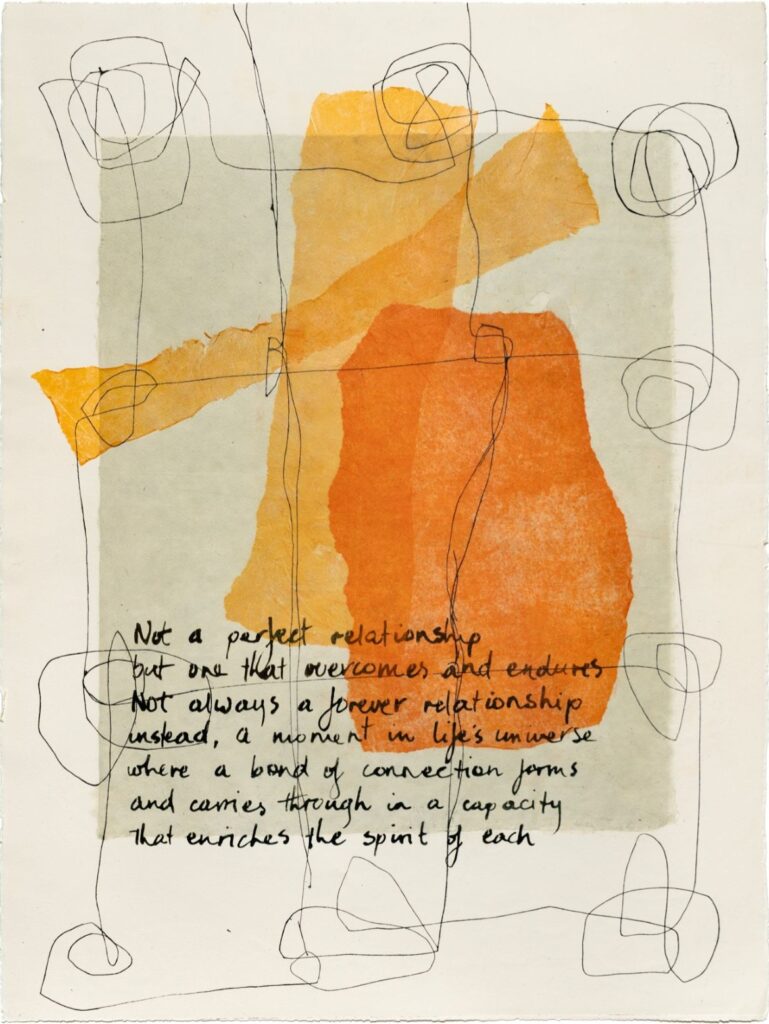 Not a perfect relationship
but one that overcomes and endures
Not always a forever relationship
instead, a moment in life's universe
where a bond of connection forms
and carries through in a capacity
that enriches the spirit of each